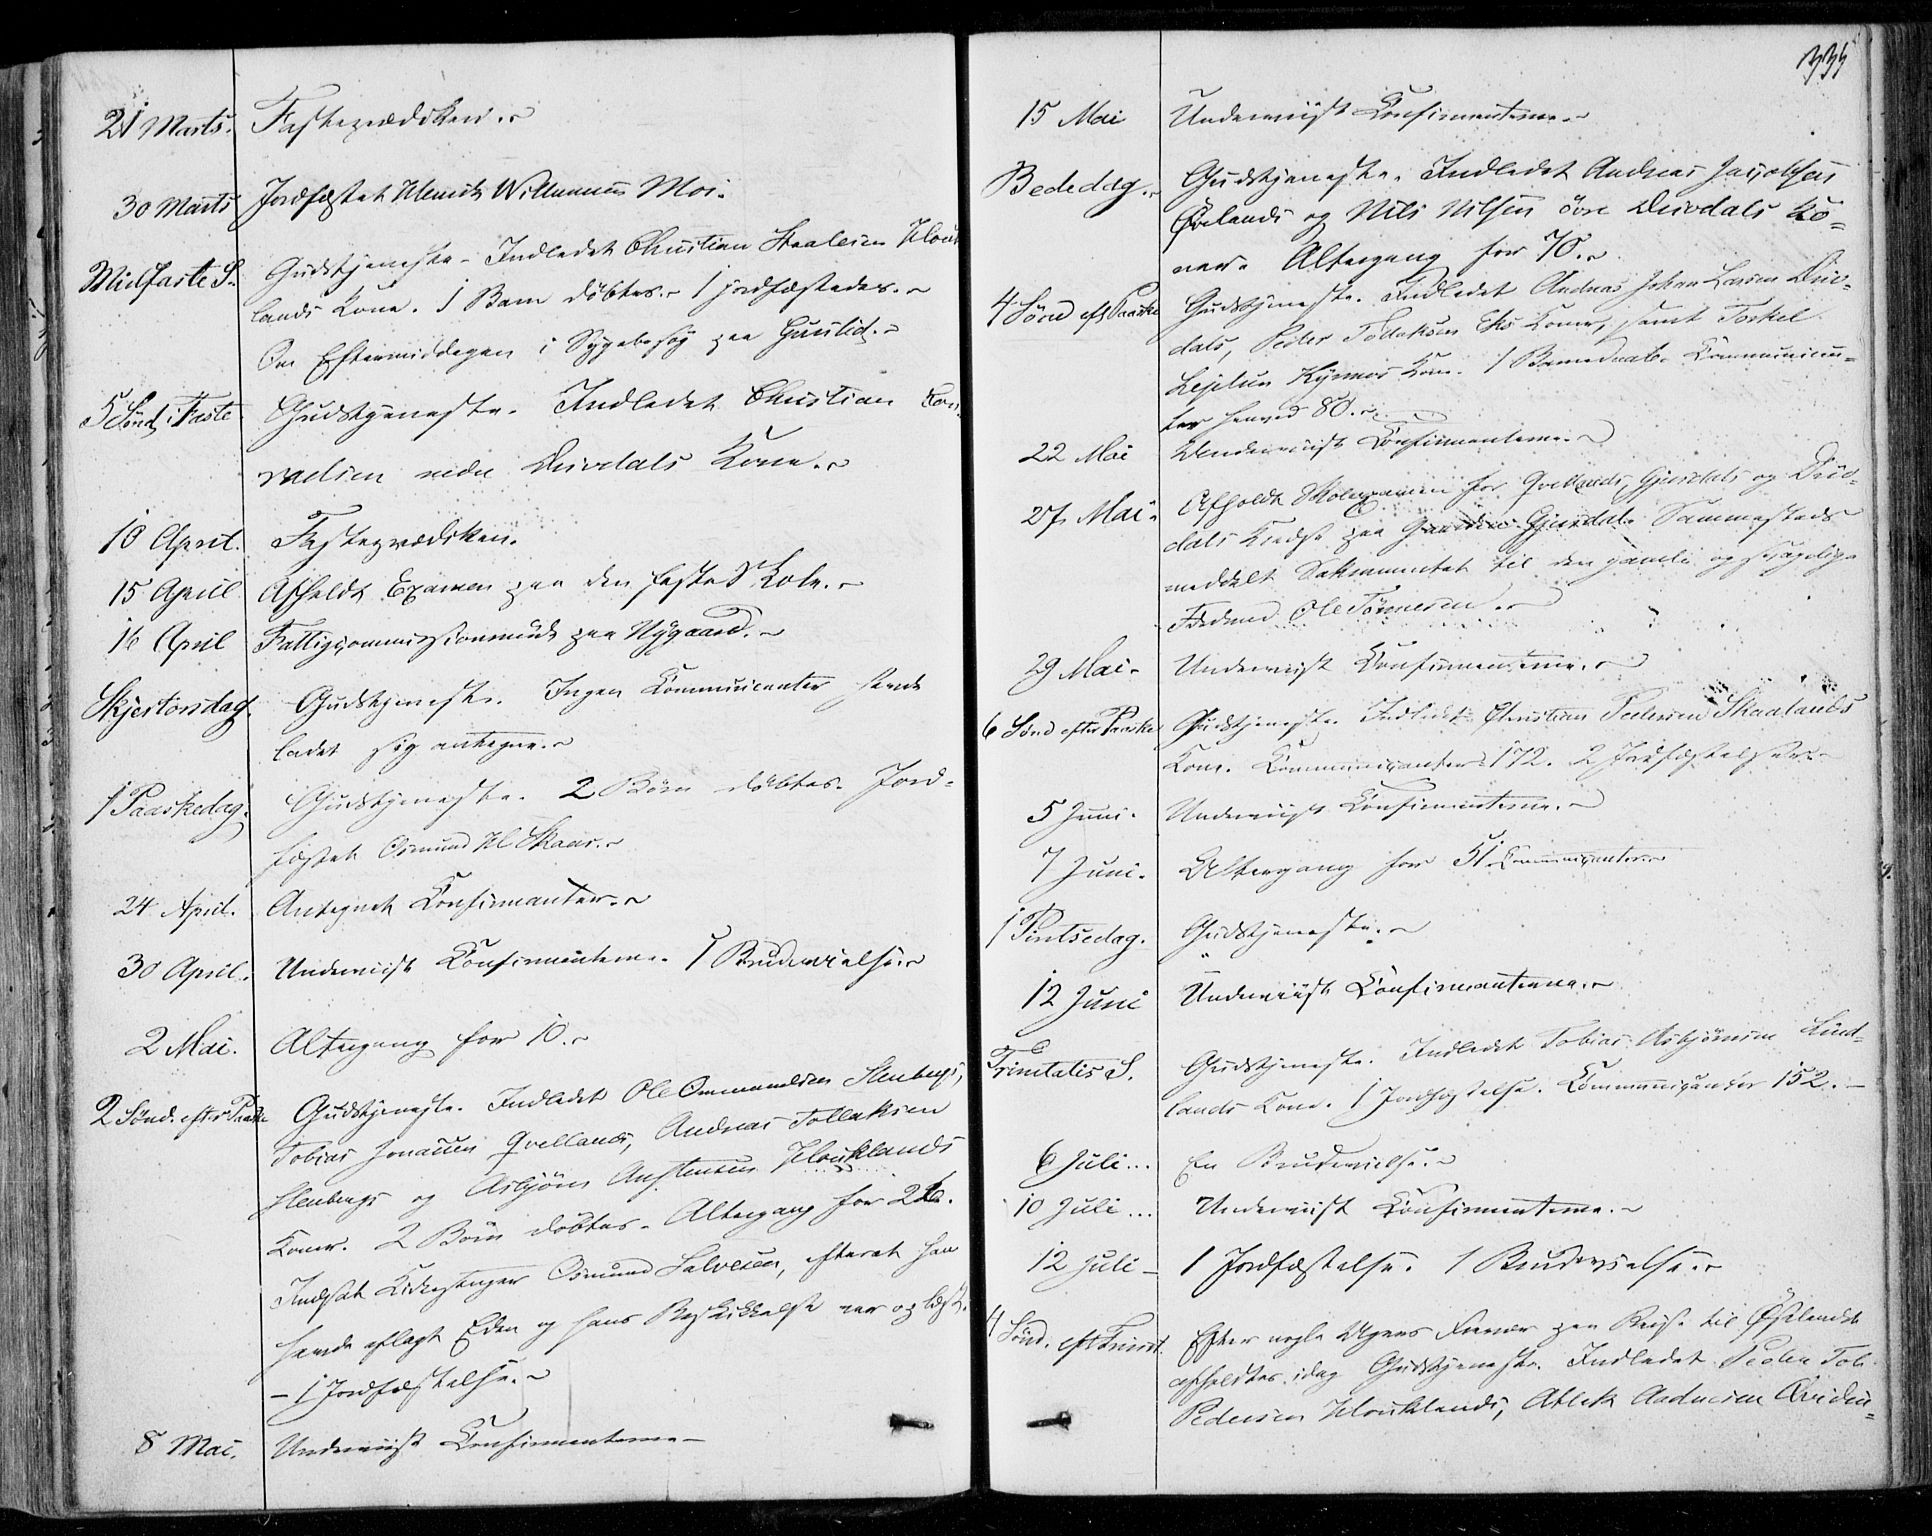 21 Marts. Fasteprædiken.
30 Marts Jordfæstet Henrik Willumsens Moi.
Midfaste S. Gudstjeneste. Indledet Christian Staalesen Houk
lands Kone. 1 Barn döbtes. 1 jordfæstedes.
Om Eftermiddagen i Sygebesög paa
5 Sönd. i Faste Gudstjeneste. Indledet Christian Con
radsen nedre Drivdals Kone.
10 April. Fasteprædiken.
15 April Afholdt Examen paa den faste Skole.
16 April Fattigcommissionsmöde paa Nygaard.
Skjertorsdag. Gudstjeneste. Ingen Communicanter havde
ladet sig antegne.
1 Paaskedag. Gudstjeneste. 2 Börn döbtes. Jord-
fæstet Osmund Skaar.
24 April. Antegnet Confirmanter.
30 April. Underviist Confirmanterne. 1 Brudevielse.
2 Mai. Altergang for 10.
2 Sönd. efter Paaske Gudstjeneste. Indledet Ole Ommundsen Stenbergs,
Tobias Jonassen Qvellands, Andreas Tollaksen
Stenbergs og Asbjörn Austensen Houklands
Koner. 2 Börn döbtes. Altergang for 26.
Indsat Kirkesanger Osmund Salvesen, efterat han
havde aflagt Eden og hans Beskikkelse var oplæst.
- 1 Jordfæstelse.
8 Mai. Underviist Confirmanterne
335
15 Mai Underviist Confirmanterne.
Bededag. Gudstjeneste. Indledet Andreas Jacobsen
Ørlands og Nils Nilsen övre Drivdals Ko-
ner. Altergang for 70.
4 Sönd eft Paaske Gudstjeneste. Indledet Andreas Johan Larsen Driv-
dals, Peder Tollaksen Koner, samt Torkel
Kone. 1 Barnedaab. Communican-
ter henved 80.
22 Mai Underviist Confirmanterne.
27 Mai. Afholdt Skoleexamen for Qvellands, Gjersdals og Driv-
dals Kredse paa Gaarden Gjersdal. Sammesteds
meddelt Sakramentet til den gamle og svagelige
Ole Tönnesen.
29 Mai. Underviist Confirmanterne.
6 Sönd efter Paaske Gudstjeneste. Indledet Christian Pedersen Skaalands
Kone. Communicanter 172. 2 Jordfæstelser.
5 Juni. Underviist Confirmanterne.
7 Juni. Altergang for 51 Communicanter.
1 Pintsedag. Gudstjeneste.
12 Juni Underviist Confirmanterne.
Trinitatis S. Gudstjeneste. Indledet Tobias Asbjörnsen Lind-
lands Kone. 1 Jordfæstelse. Communicanter 152.
6 Juli... En Brudevielse.
10 Juli... Underviist Confirmanterne.
12 Juli 1 Jordfæstelse. 1 Brudevielse.
4 Sönd. eft Trinit. Efter nogle Ugers Fravær paa Reise til Østlandet
afholdtes idag Gudstjeneste. Indledet Peder Tob.
Pedersen Houklands, Atlak Aadnesen